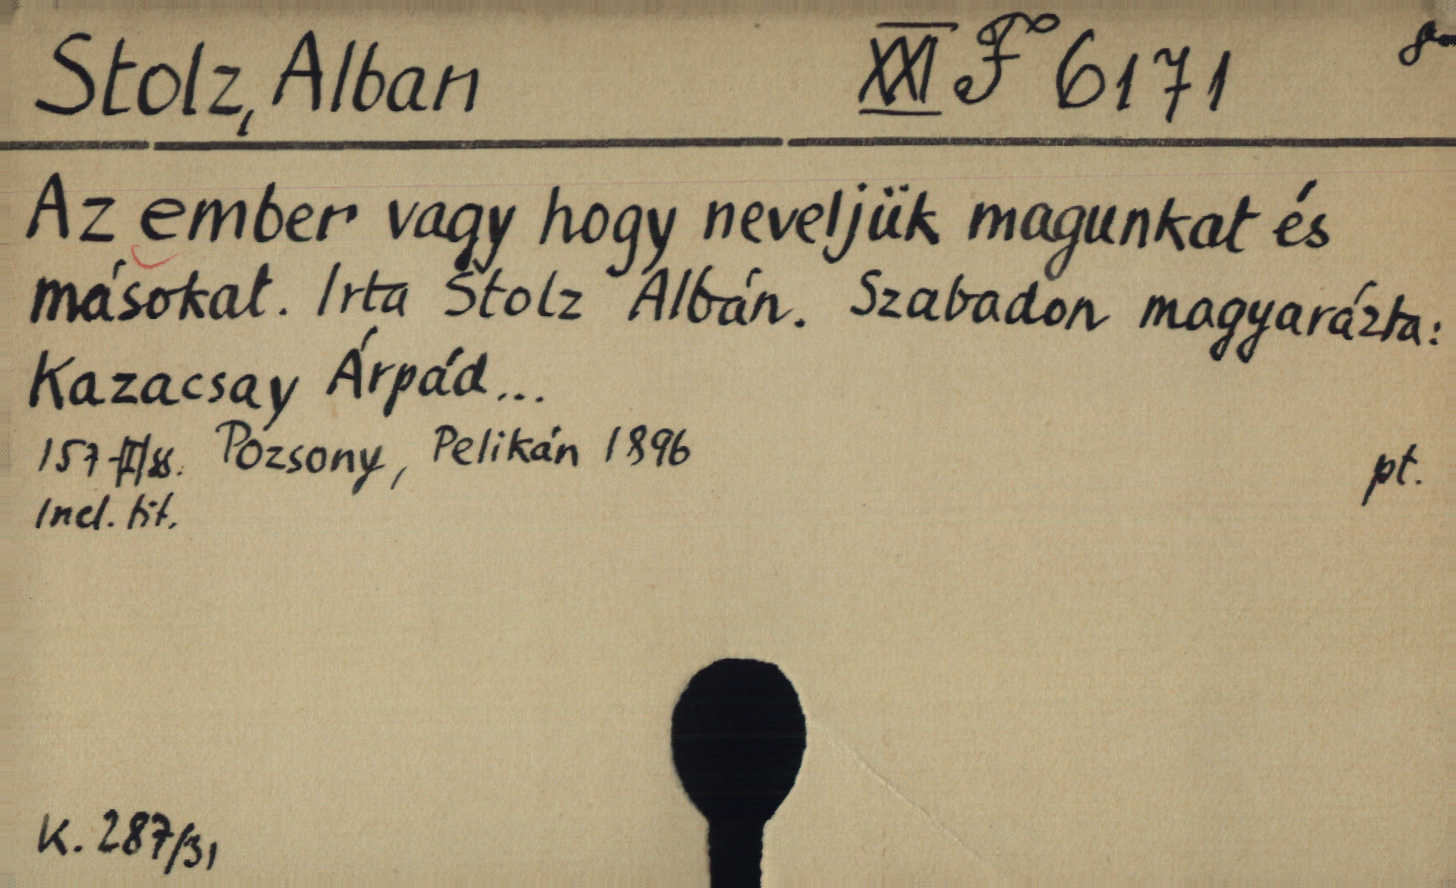 Stolz, Alban XXI F 6171
Az ember vagy hogy neveljük magunkat és
másokat. Irta Stolz Albán. Szabadon magyarázta:
Kazacsay Árpád...
157-II/ss. Pozsony, Pelikán 1896 pt.
Incl. tit.
K. 287/31